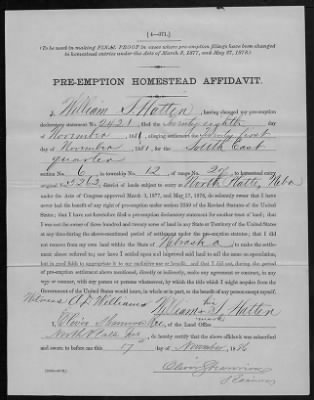 [4—071.]
(To be used in making FINAL PROOF in cases where pre-emption filings have been changed
to homestead entries under the Acts of March 3, 1877, and May 27, 1878.)
PRE-EMPTION HOMESTEAD AFFIDAVIT.
I, William S. Hutten, having changed my pre-emption
declaratory statement No. 2421 the twenty eighth day
of November, 1881, alleging settlement the twenty first
day of November, 1881, for the South East
quarter
section No. 6, in township 12, of range 27, to homestead entry
No. 2262, district of lands subject to entry at North Platte, Neba
under the Acts of Congress approved March 3, 1877, and May 27, 1878, do solemnly swear that I have
never had the benefit of any right of pre-emption under section 2259 of the Revised Statutes of the United
States; that I have not heretofore filed a pre-emption declaratory statement for another tract of land; that
I was not the owner of three hundred and twenty acres of land in any State or Territory of the United States
at any time during the above-mentioned period of settlement under the pre-emption statute; that I did not
remove from my own land within the State of Nebraska to make the settlement
above referred to; nor have I settled upon and improved said land to sell the same on speculation,
but in good faith to appropriate it to my exclusive use or benefit; and that I did not, during the period of
pre-emption settlement above mentioned, directly or indirectly, make any agreement or contract, in any
way or manner, with any person or persons whomsoever, by which the title which I might acquire from the
Government of the United States would inure, in whole or in part, to the benefit of any person except myself.
Witness A. D. Williams William S. Hutten
his
mark
I, of the Land Office
North Platte, do hereby certify that the above affidavit was subscribed
and sworn to before me this 17 day of November, 1886